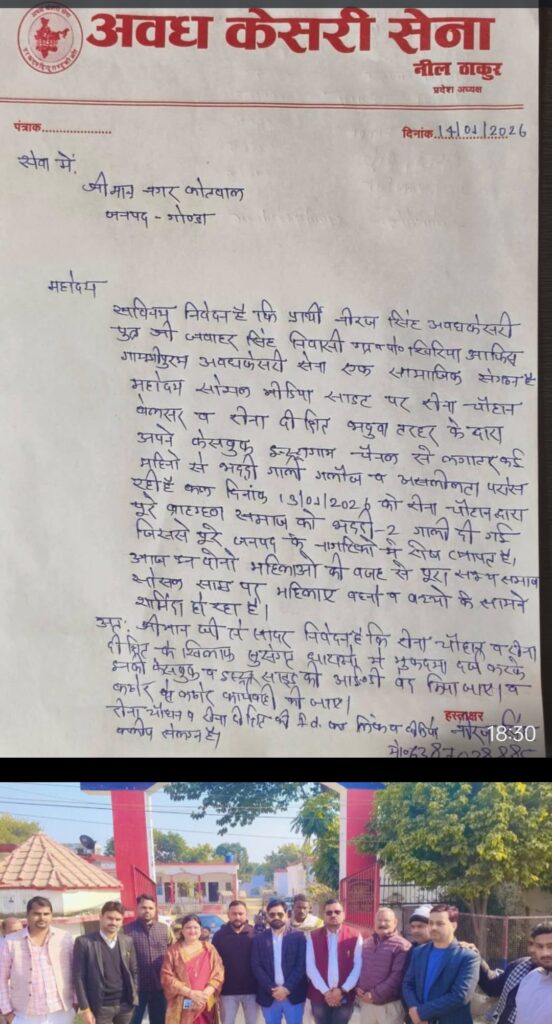 अवध केसरी सेना
नील ठाकुर
प्रदेश अध्यक्ष
पंत्राक
दिनांक 14/01/2026
सेवा में,
श्रीमान नगर कोतवाल
जनपद - गोण्डा
महोदय
सविनय निवेदन है कि प्रार्थी नीरज सिंह अवधकेसरी
पुत्र श्री जवाहर सिंह निवासी खिरिया
अवधकेसरी सेना एक सामाजिक संगठन है
महोदय सोशल मीडिया साइट पर सेना चौहान
बेलसर व सेना दीक्षित के द्वारा
अपने फेसबुक चैनल से लगातार कई
महिनो से भद्दी गाली गलौज व असलीलता परोस
रही है कल दिनांक 13/01/2026 को सेना चौहान द्वारा
पुरे समाज को भद्दी-2 गाली दी गई
जिससे पुरे जनपद के नागरिको में रोष व्याप्त है,
आज इन दोनो महिलाओ की वजह से पूरा सभ्य समाज
सोसल साइट पर महिलाए व बच्चो के सामने
शर्मिंदा हो रहा है।
अतः श्रीमान जी से सादर निवेदन है कि सेना चौहान व सेना
दीक्षित के खिलाफ सुसंगत धाराओ में मुकदमा दर्ज करके
इनकी फेसबुक व साइट की आईडी बंद किया जाए। व
कठोर से कठोर कार्यवाही की जाए।
सेना चौहान व सेना दीक्षित की लिंक व
संलग्न है।
हस्ताक्षर
नीरज सिंह
18:30